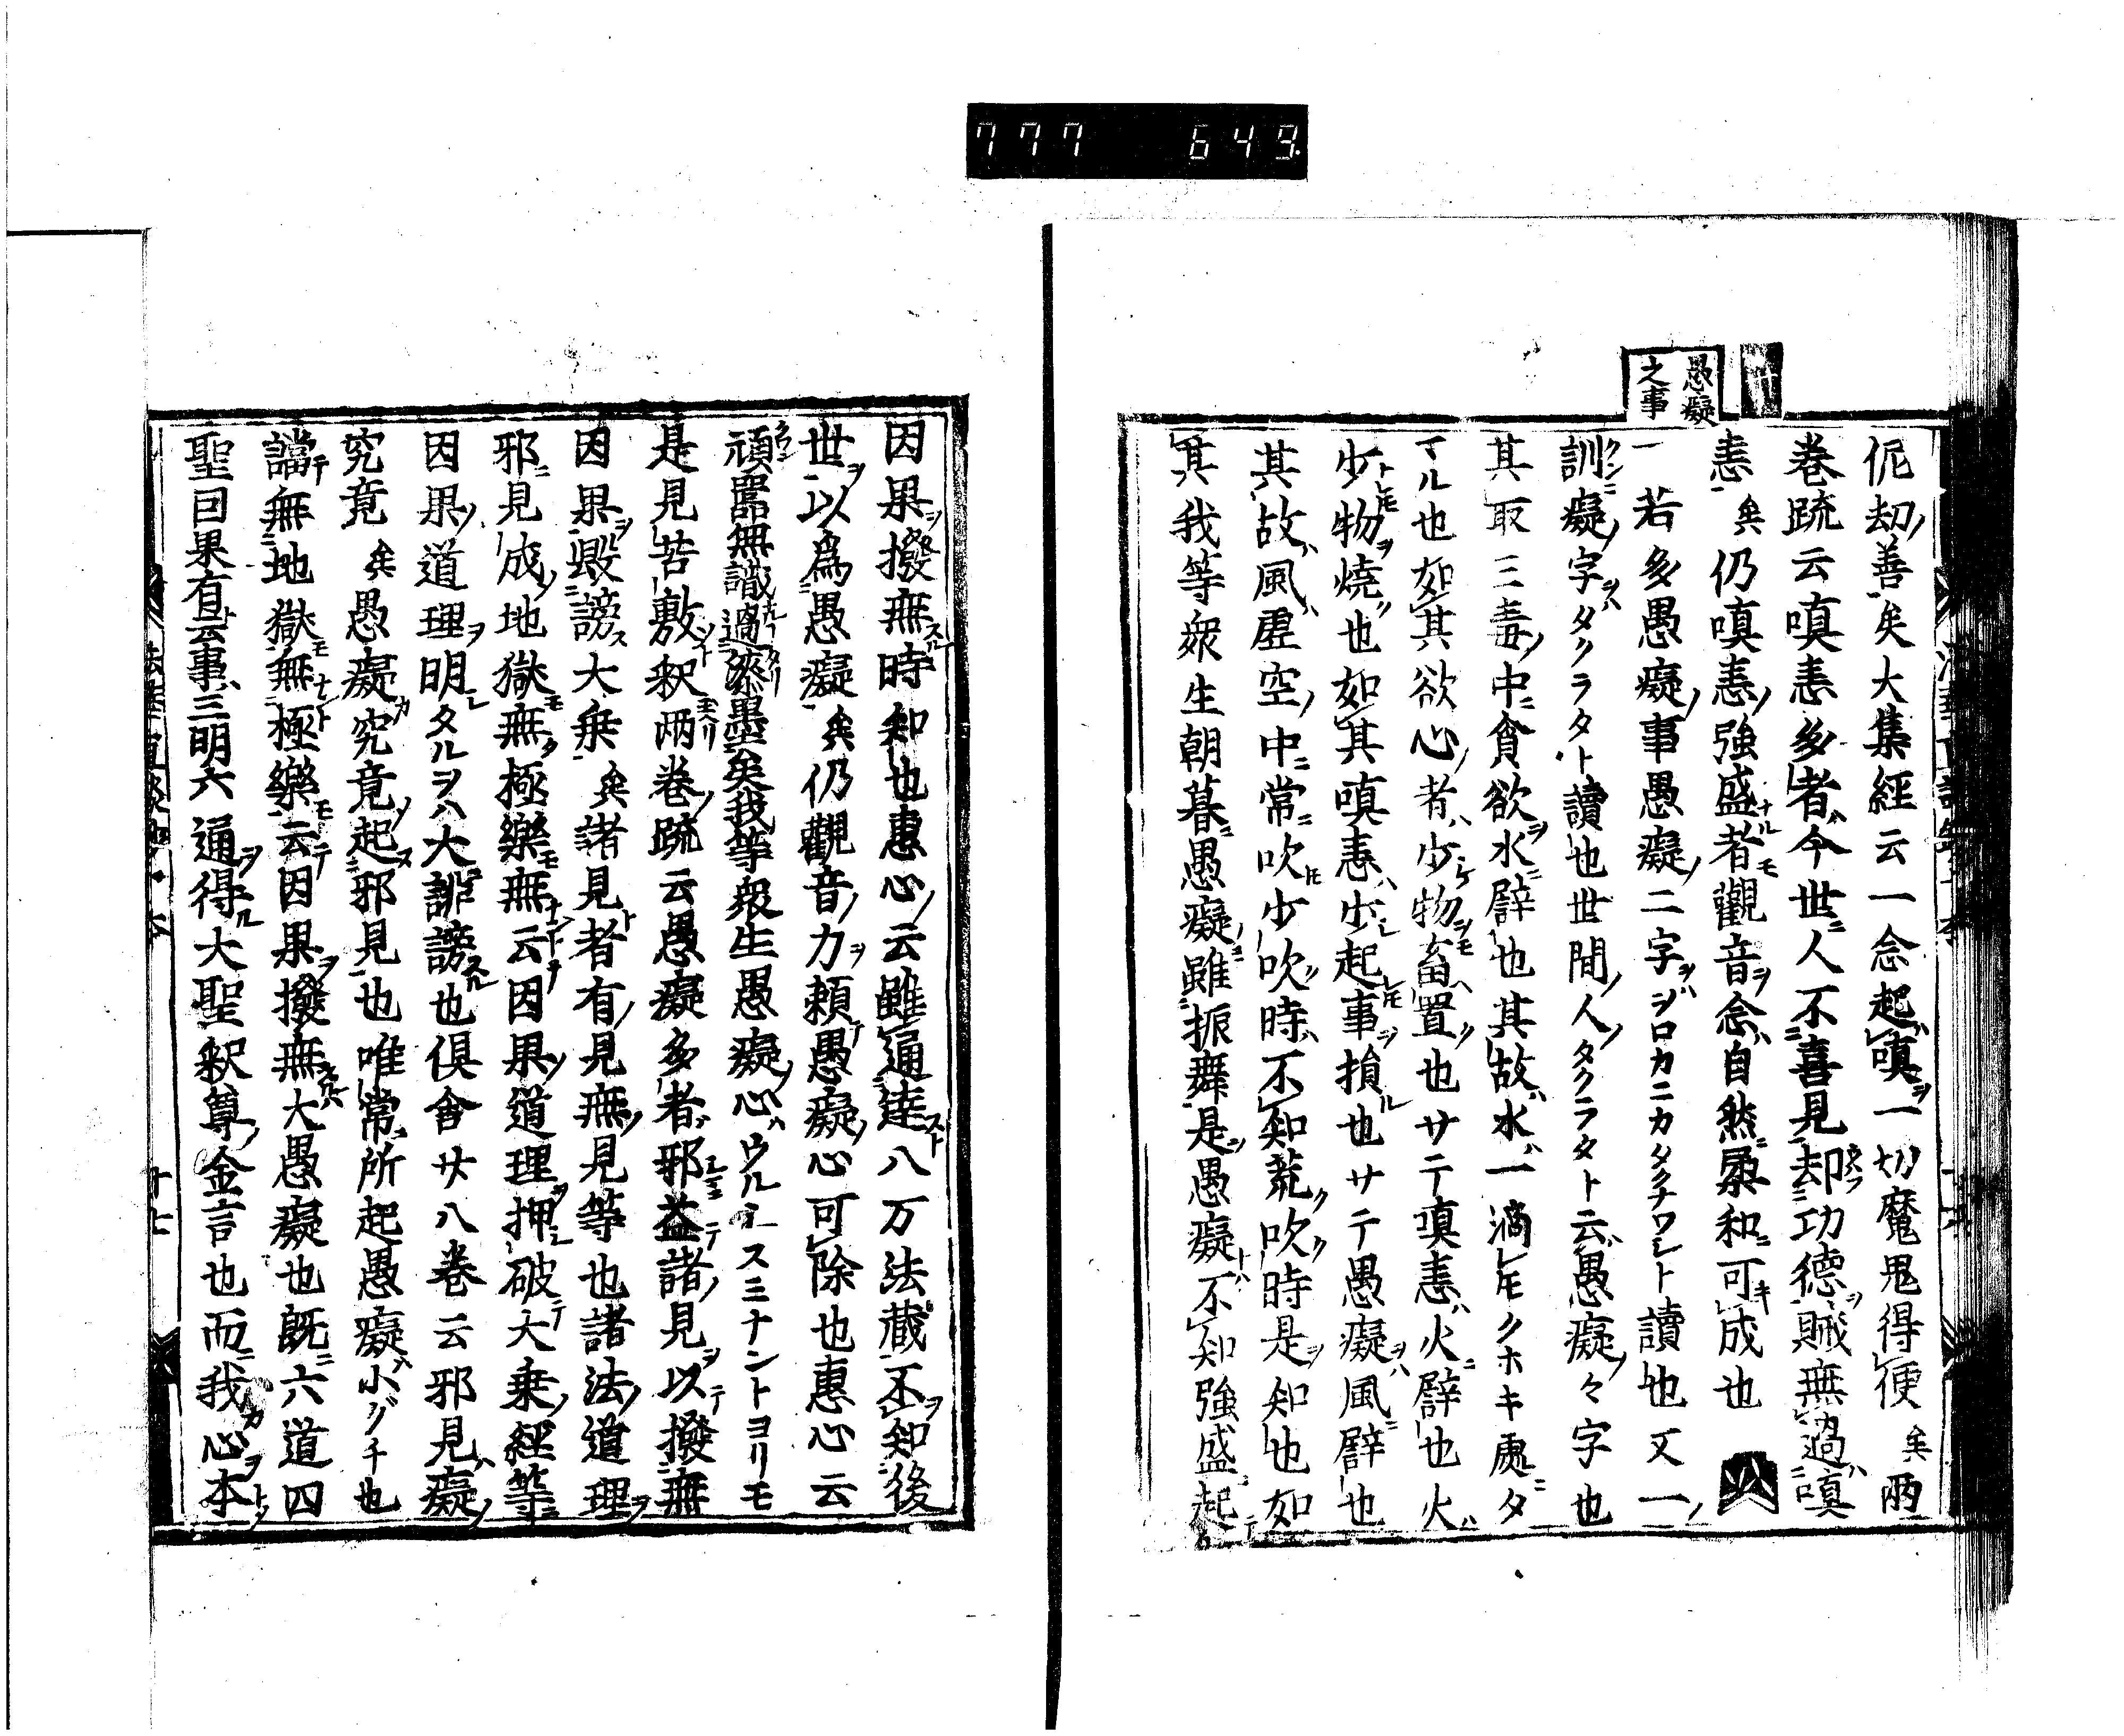 777 649
愚癡
之事
伲劫善矣大集經云一念起嗔一切魔鬼得便矣兩
巻疏云嗔恚多者今世人不喜見却功德賊無過嗔
恚矣仍嗔恚強盛者觀音念自然柔和可成也
一若多愚癡事愚癡二字ヲハヲロカニカタクナワシト讀也又一
訓癡字ヲハタクラタト讀也世間人タクラタト云愚癡々字也
其取三毒中貪欲水譬也其故水一滴クホキ處タ
マル也如其欲心者少物畜置也サテ嗔恚火譬也火
少物燒也如其嗔恚少起事損也サテ愚癡風譬也
其故風虚空中常吹少吹時不知荒吹時是知也如
其我等衆生朝暮愚癡雖振舞是愚癡不知強盛起
因果撥無時知也惠心云雖通達八万法藏不知後
世以為愚癡矣仍觀音力賴愚癡心可除也惠心云
頑嚚無識過漆墨矣我等衆生愚癡心ウルミスミナントヨリモ
是見苦敷釈兩巻疏云愚癡多者邪益諸見以撥無
因果毀謗大乗矣諸見者有見無見等也諸法道理
邪見成地獄無極樂無云因果道理押破大乗經等
因果道理明タルヲハ大誹謗也倶舍廿八巻云邪見癡
究竟矣愚癡究竟起邪見也唯常所起愚癡小グチ也
讜無地獄無極樂云因果撥無大愚癡也既六道四
聖因果有云事三明六通得大聖釈尊金言也而我心本
十七